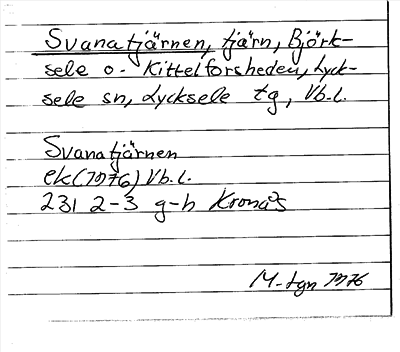 Svanatjärnen, tjärn, Björk-
sele o. Kittelforsheden, Lyck-
sele sn, Lycksele tg, Vb.l.
Svanatjärnen
ek (1976) Vb.l.
231 2-3 g-h Kronås
M-tgn 1976